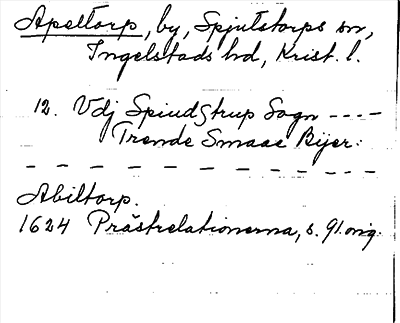 Apeltorp, by, Spjutstorps sn,
Ingelstads hd, Krist. l.
12. Vdj Spiudstrup Sogn ----
Trende Smaae Bijer:
- - - - - - - - - - - -
Abiltorp.
1624 Prästrelationerna, s. 91. orig.